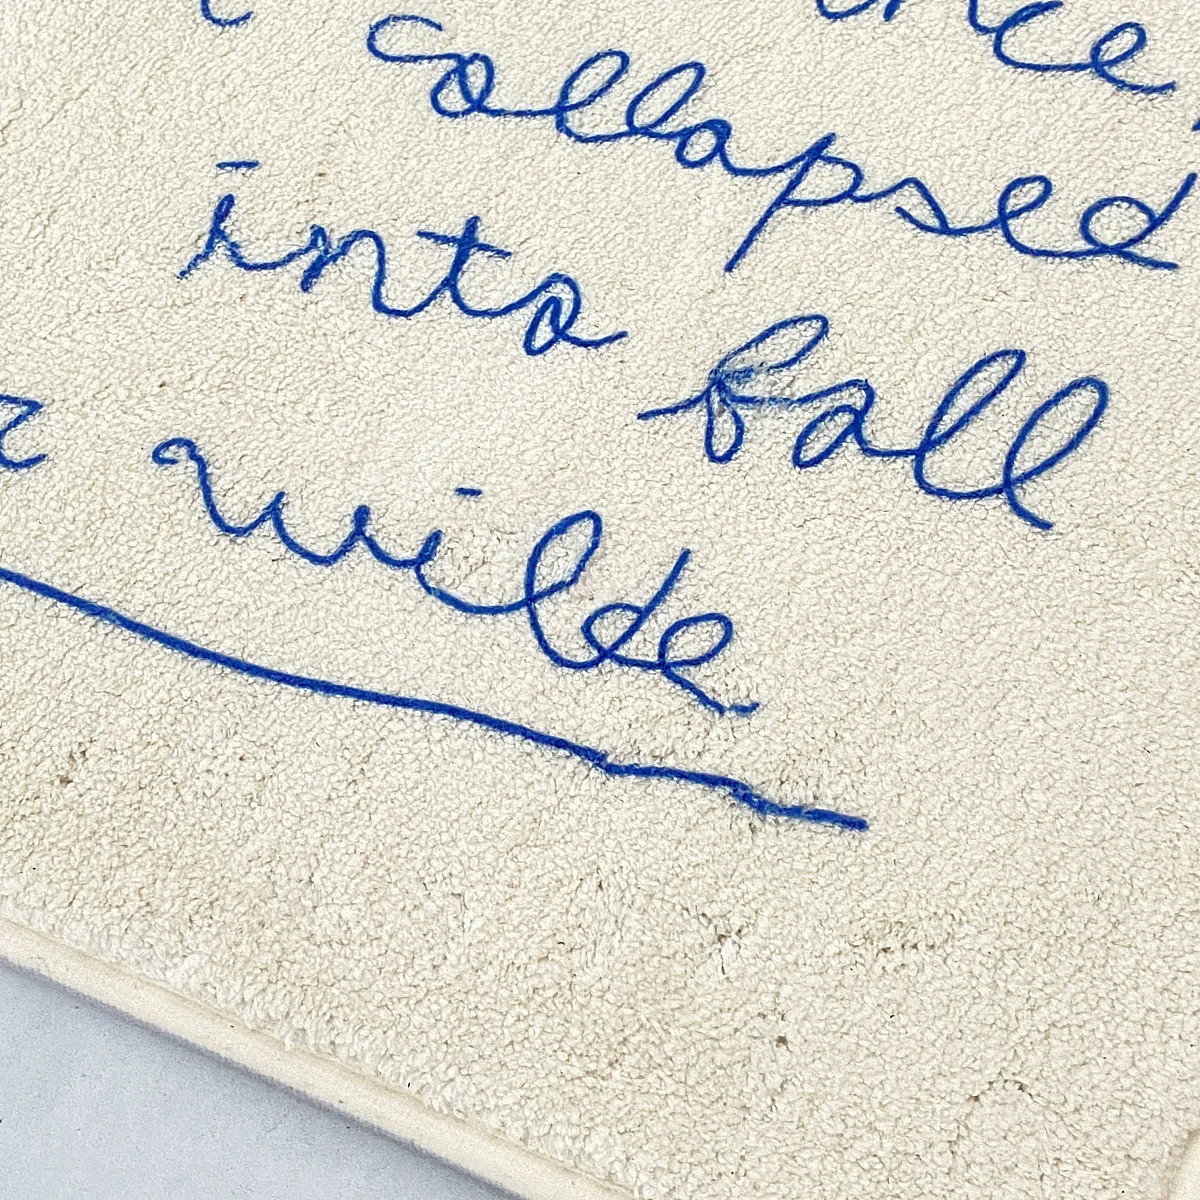 collapsed
into fall
wilde